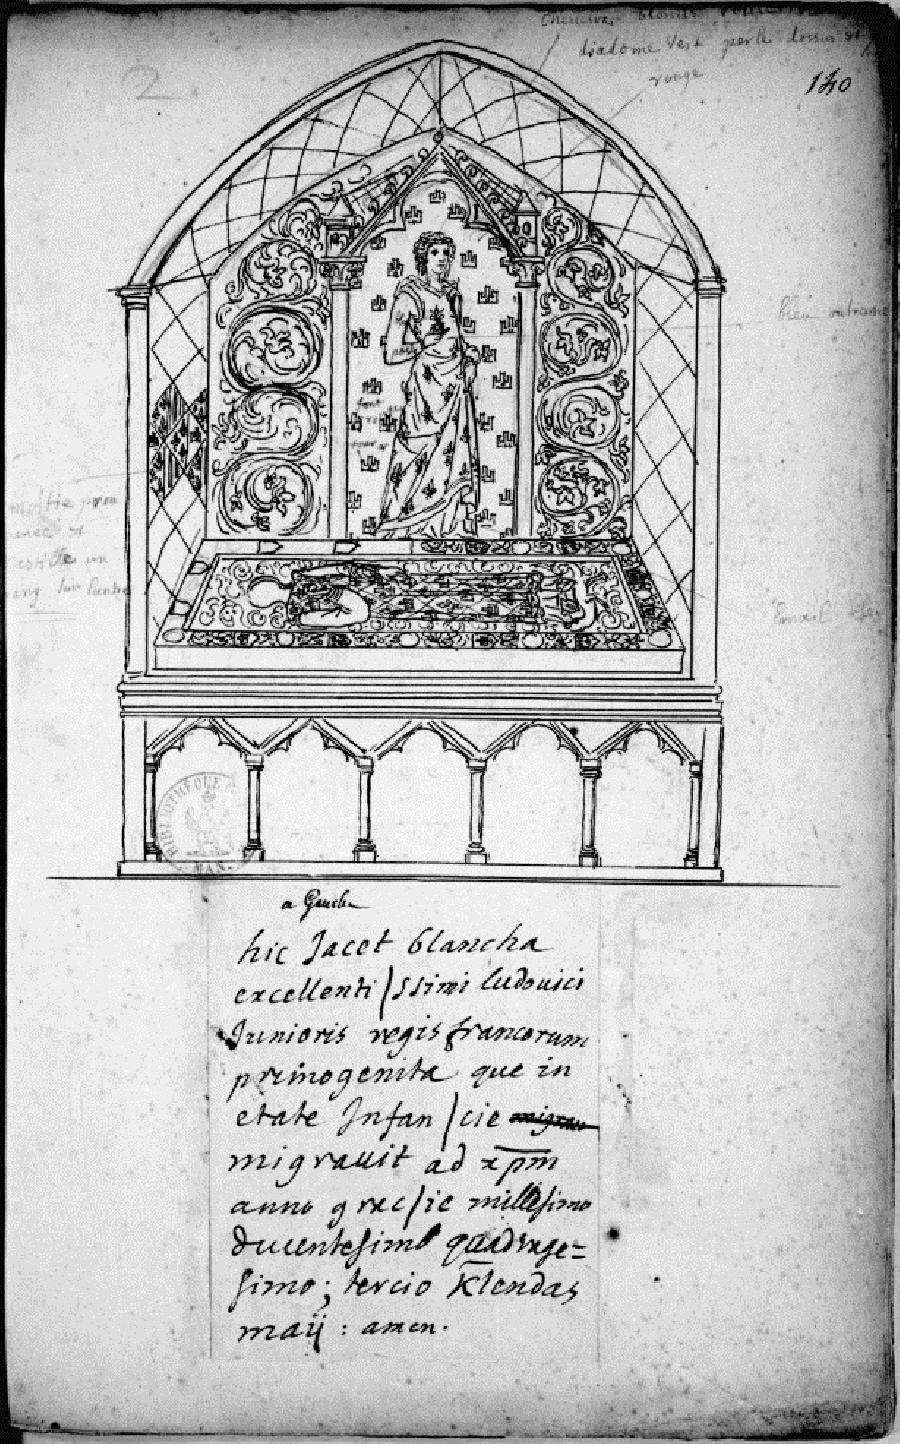 diadome vert perle dessus et
rouge
140
2
bleu
sur
Email
BIBLIOTHEQUE
MAN.
a Gauche
hic Jacet blancha
excellenti|ssimi ludouici
Junioris regis francorum
primogenita que in
etate Infan|cie migrau
migrauit ad xp̅m
anno grac|ie millesimo
ducentesimo quadrage=
simo; tercio K̅lendas
maij : amen.